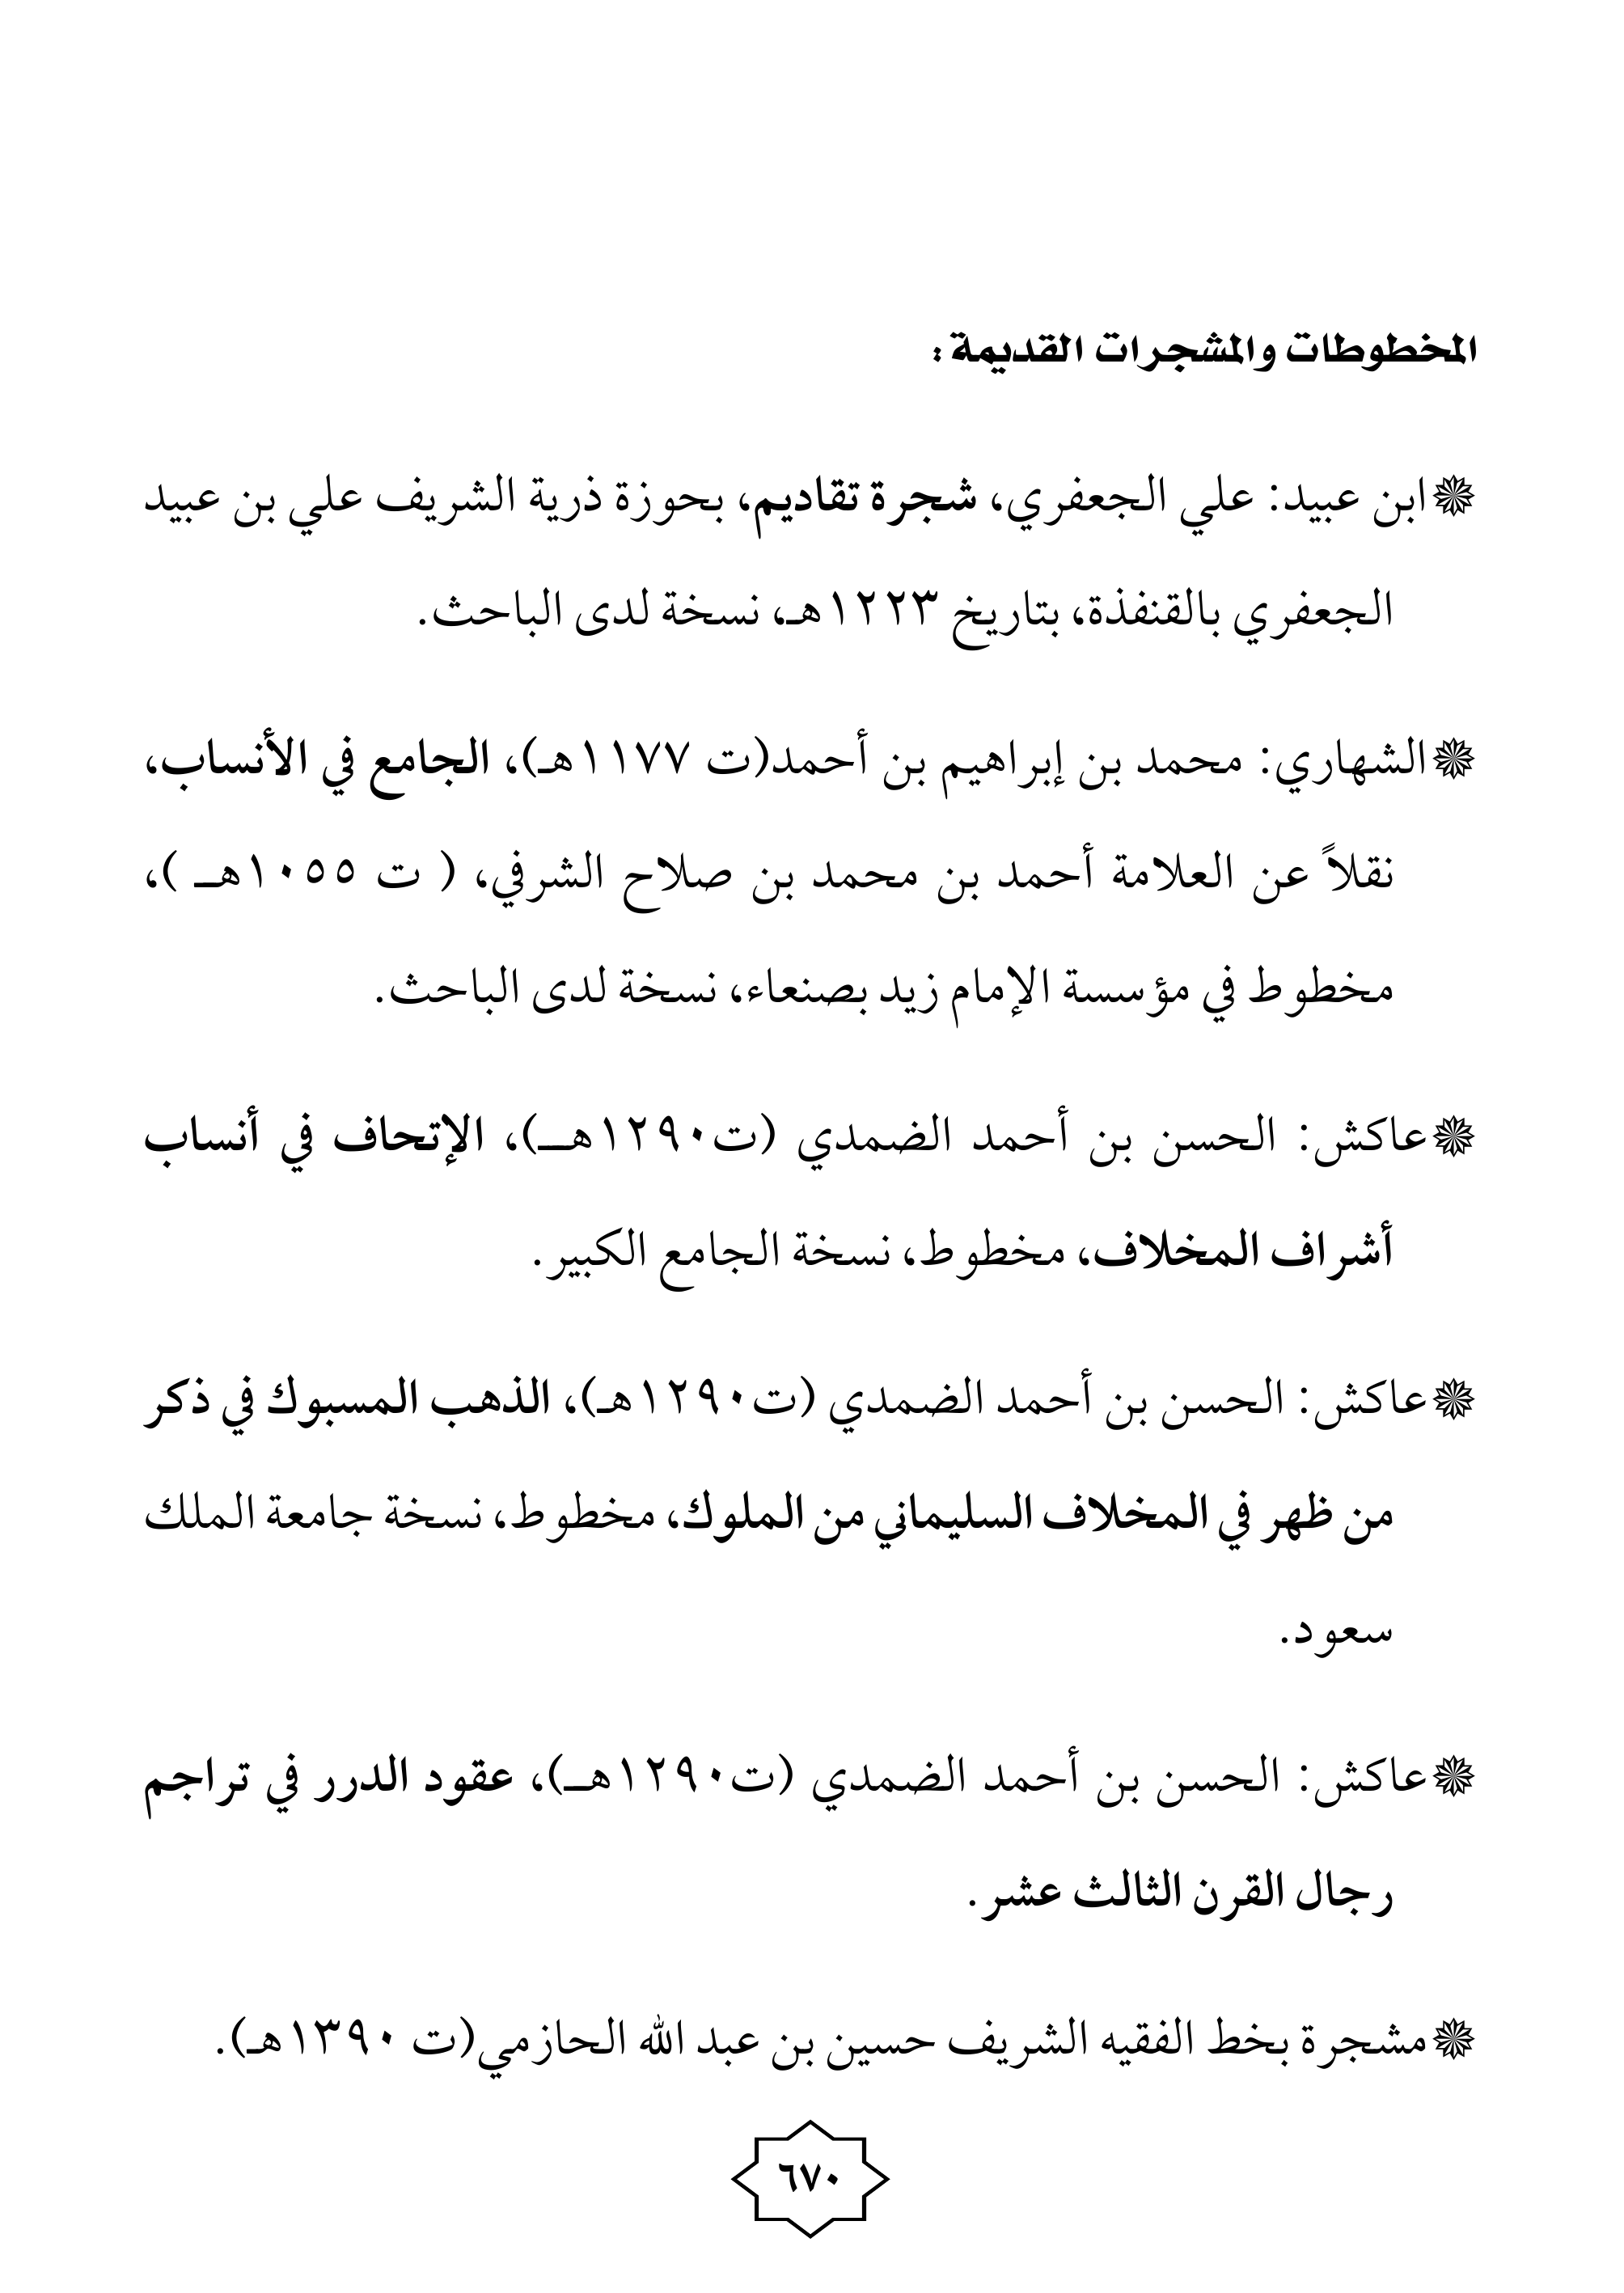 المخطوطات والمشجرات القديمة:
ابن عبيد: علي الجعفري، شجرة تقاديم، بحوزة ذرية الشريف علي بن عبيد
الجعفري بالقنفذة، بتاريخ ١٢٢٣هـ، نسخة لدى الباحث.
الشهاري: محمد بن إبراهيم بن أحمد(ت ١١٧٧هـ)، الجامع في الأنساب،
نقلاً عن العلامة أحمد بن محمد بن صلاح الشرفي، ( ت ١٠٥٥هـ )،
مخطوط في مؤسسة الإمام زيد بصنعاء، نسخة لدى الباحث.
عاكش: الحسن بن أحمد الضمدي (ت١٢٩٠هـ)، الإتحاف في أنساب
أشراف المخلاف، مخطوط، نسخة الجامع الكبير.
عاكش: الحسن بن أحمد الضمدي (ت١٢٩٠هـ)، الذهب المسبوك في ذكر
من ظهر في المخلاف السليماني من الملوك، مخطوط، نسخة جامعة الملك
سعود.
عاكش: الحسن بن أحمد الضمدي (ت١٢٩٠هـ)، عقود الدرر في تراجم
رجال القرن الثالث عشر.
مشجرة بخط الفقيه الشريف حسين بن عبد الله الحازمي(ت ١٣٩٠هـ).
٦٧٠